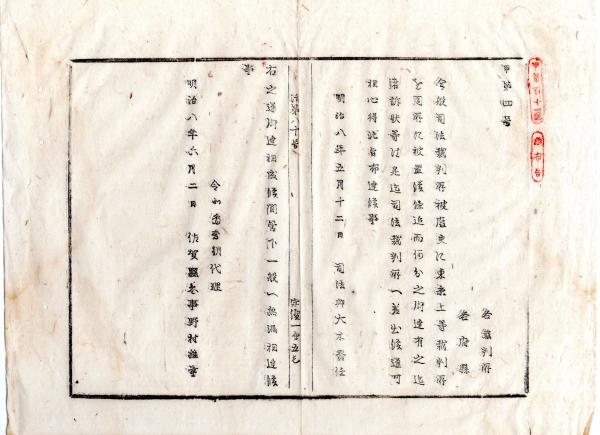 甲第四号
各裁判所
各府県
今般司法裁判所被廃更ニ東京上等裁判所
ヲ同所ヘ被置候条追而何分之御達有之迄
訴状等ハ是迄司法裁判所ヘ差出候通可
相心得此旨布達候事
明治八年五月十二日 司法卿大木喬任
第八十号
右之通御達相成候間管下一般ヘ無漏相達候
事
令
代理
明治八年六月二日 佐賀縣参事野村維章